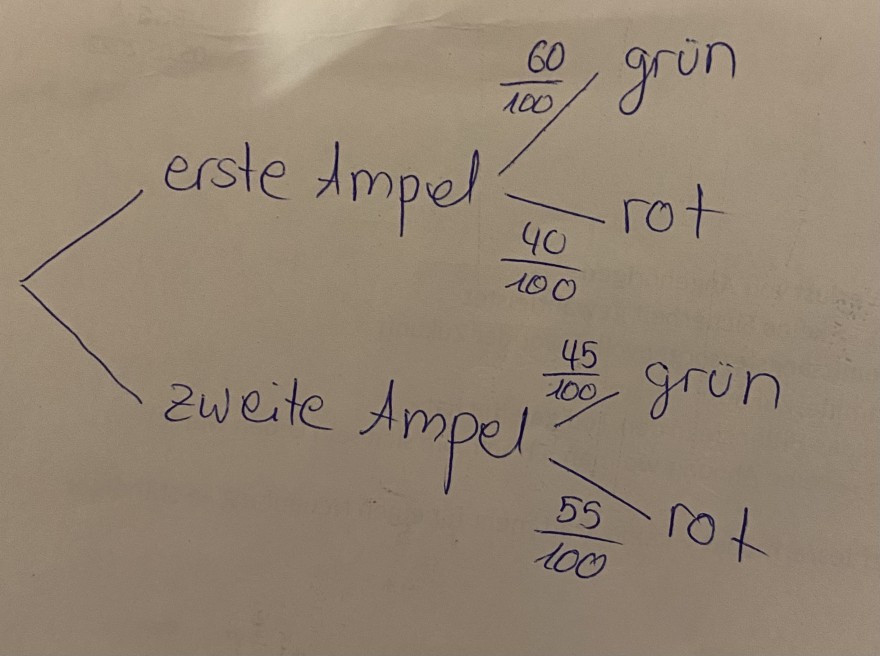 60
100
grün
erste Ampel
rot
40
100
45
100
grün
zweite Ampel
55
100
rot